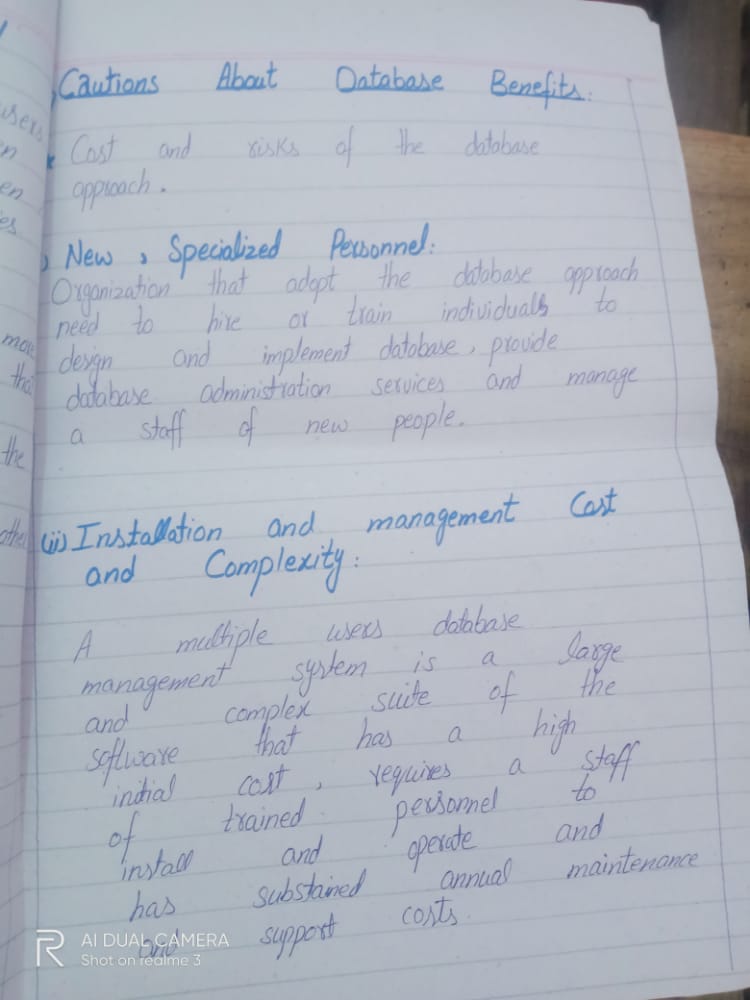 Cautions About Database Benefits:
Cost and risks of the database
approach.
) New, Specialized Personnel:
Organization that adopt the database approach
need to hire or train individuals to
design and implement database, provide
database administration services and manage
a staff of new people.
(ii) Installation and management Cost
and Complexity:
A multiple users database
management system is a large
and complex suite of the
software that has a high
initial cost, requires a staff
of trained personnel to
install and operate and
has substained annual maintenance
and support costs.
users
en
es
more
tha
the
other
R AI DUAL CAMERA
Shot on realme 3